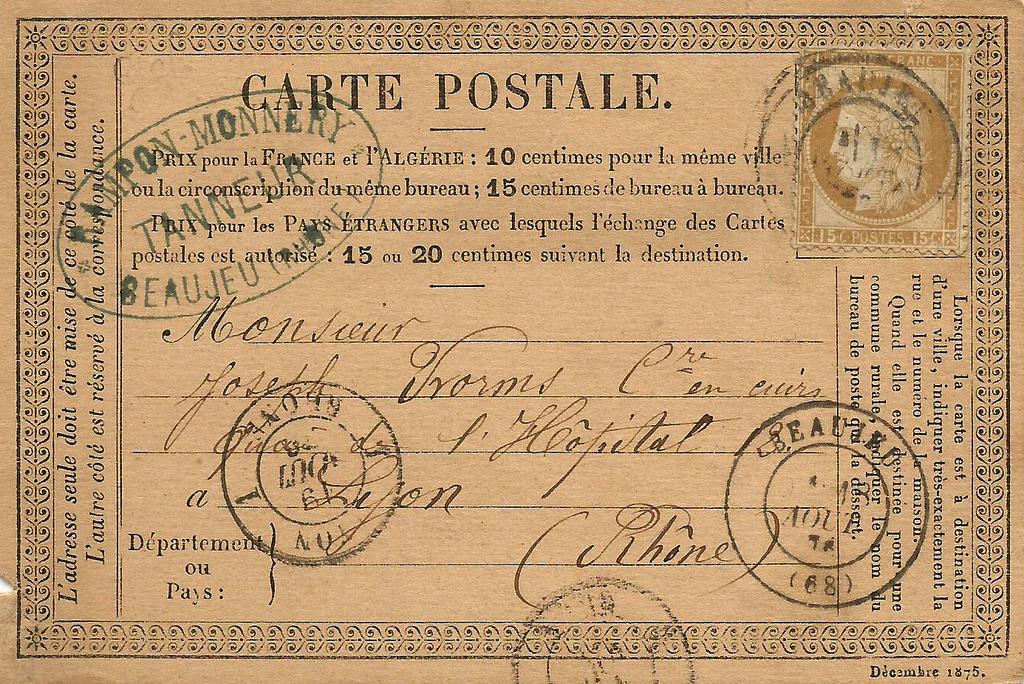 CARTE POSTALE.
PRIX pour la FRANCE et l'ALGÉRIE : 10 centimes pour la même ville
ou la circonscription du même bureau ; 15 centimes de bureau à bureau.
PRIX pour les PAYS ÉTRANGERS avec lesquels l'échange des Cartes
postales est autorisé : 15 ou 20 centimes suivant la destination.
MONNERY
TANNEUR
BEAUJEU (RHÔNE)
FRANC
15 C. POSTES. 15 C.
BEAUJEU
L'adresse seule doit être mise de ce côté de la carte.
L'autre côté est réservé à la correspondance.
Monsieur
Joseph Worms Cre en cuirs
de l'Hôpital
à Lyon
(Rhône)
Département
ou
Pays :
LYON
RHONE
AOUT
BEAUJEU
AOUT
76
(68)
Lorsque la carte est à destination
d'une ville, indiquer très-exactement la
rue et le numéro de la maison.
Quand elle est destinée pour une
commune rurale, indiquer le nom du
bureau de poste qui la dessert.
Décembre 1875.